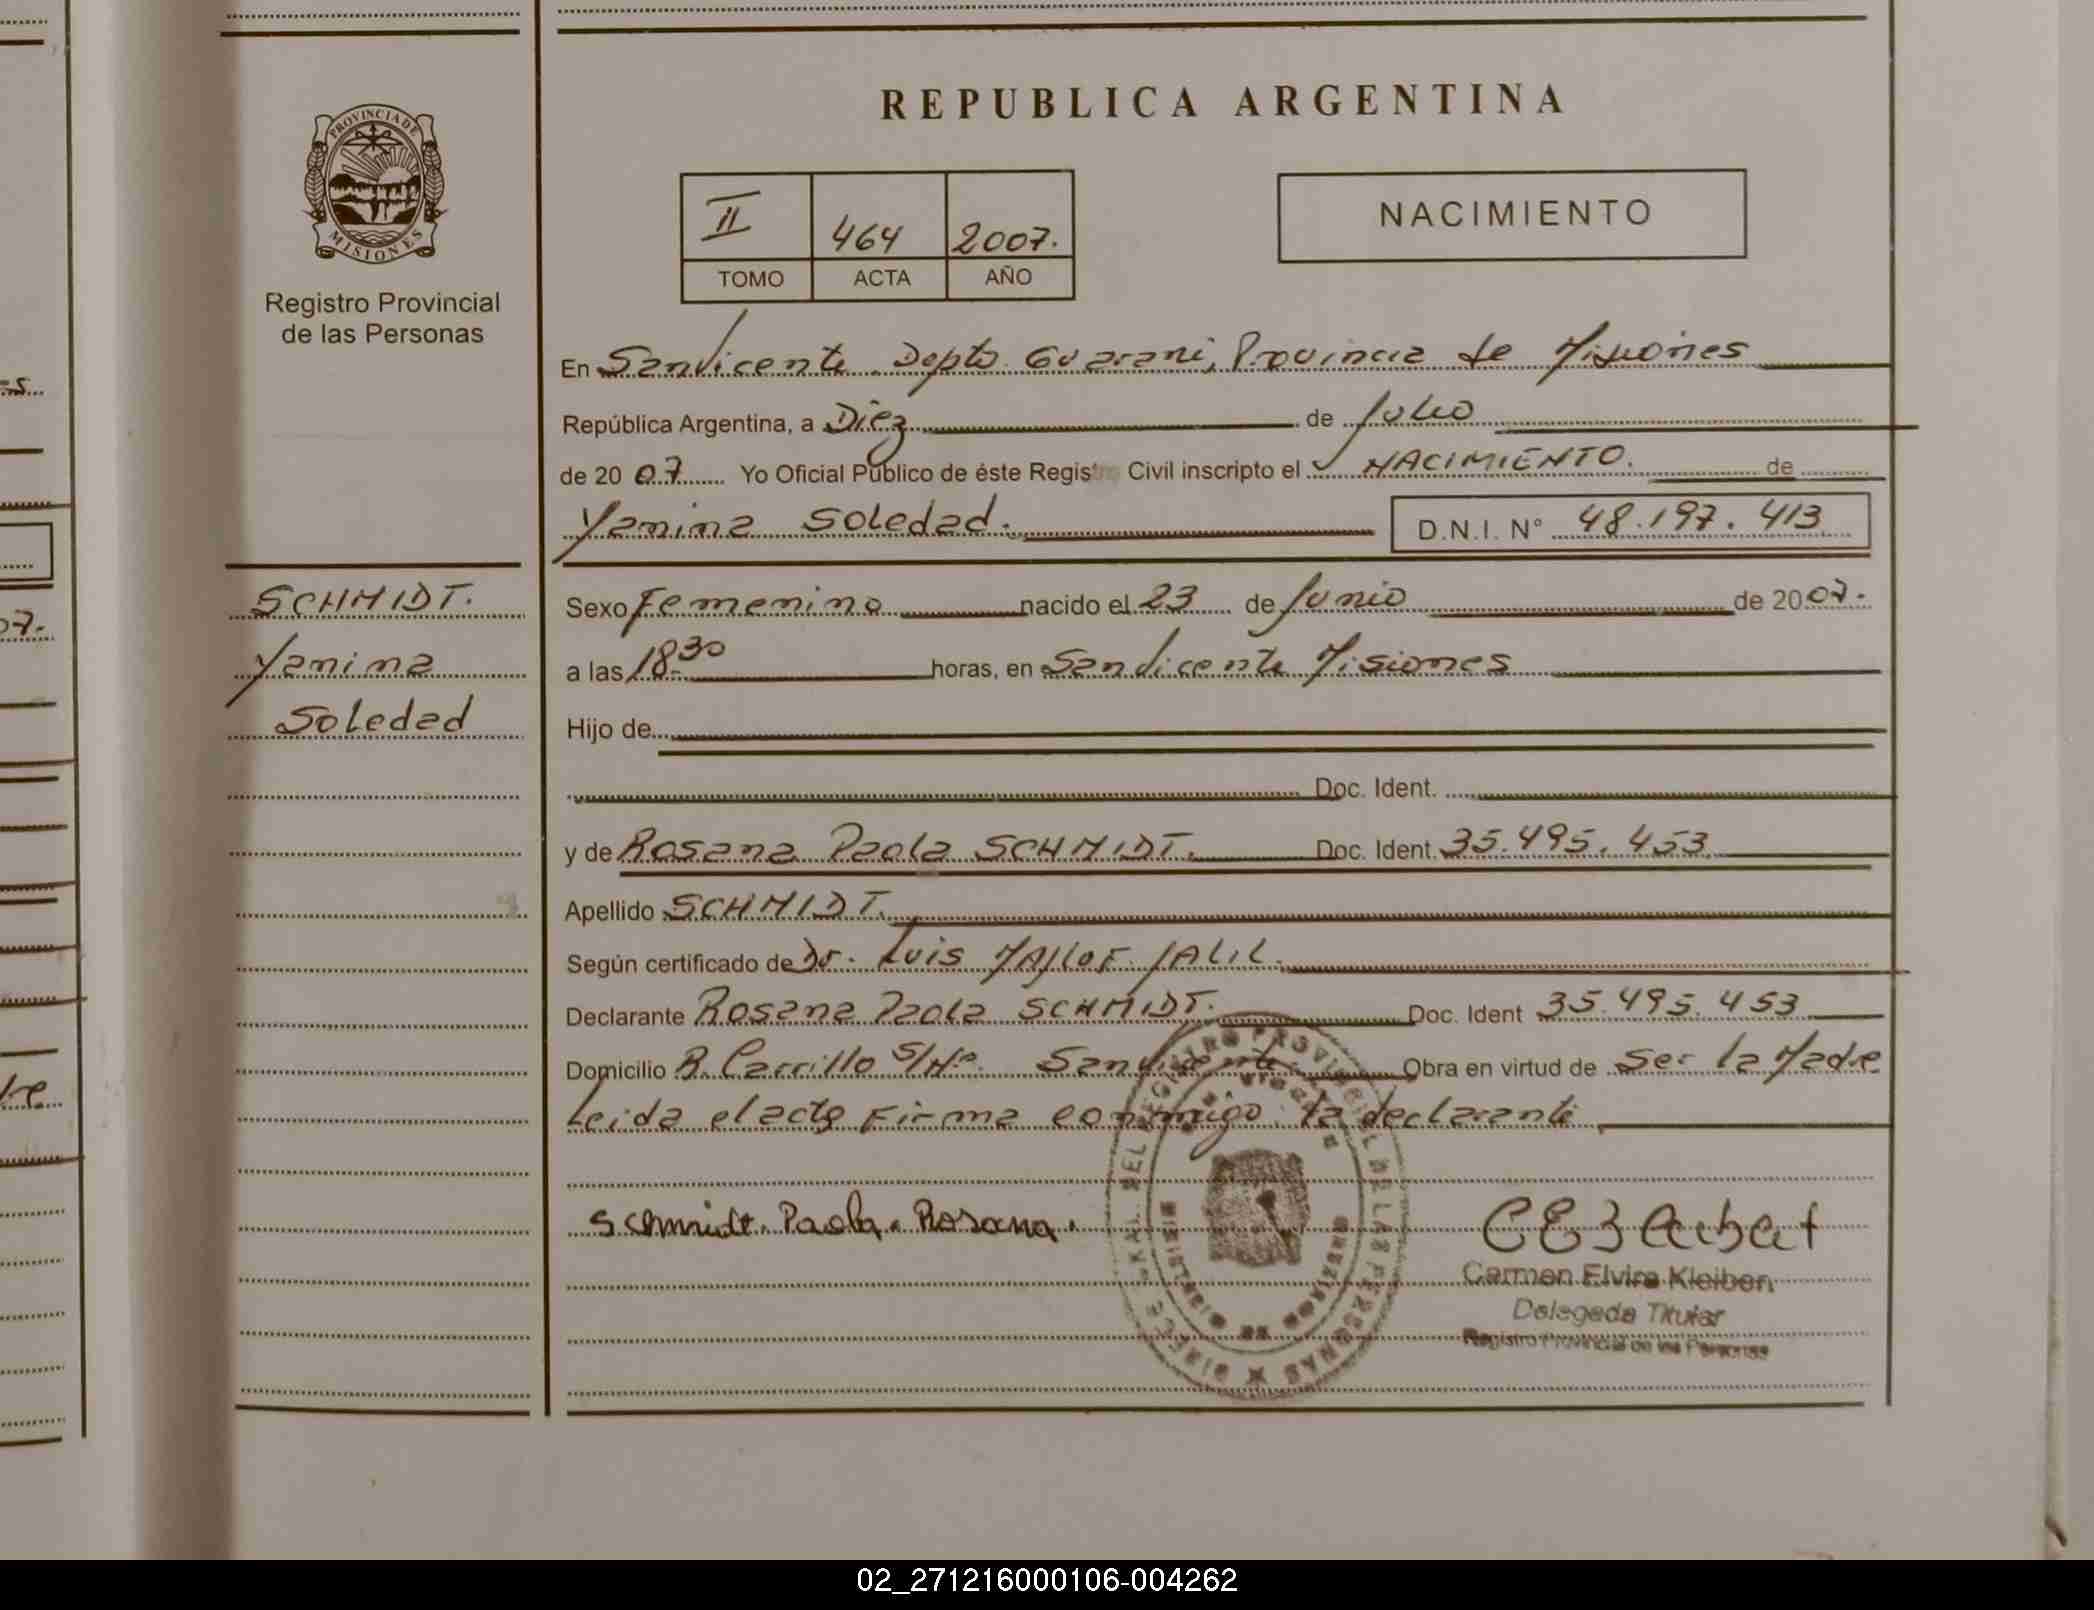 REPUBLICA ARGENTINA
PROVINCIA DE
MISIONES
Registro Provincial
de las Personas
II 464 2007.
TOMO ACTA AÑO
NACIMIENTO
En San Vicente Depto. Guarani, Provincia de Misiones
República Argentina, a Diez de Julio
de 2007 Yo Oficial Público de éste Registro Civil inscripto el NACIMIENTO. de
Yanina Soledad. D.N.I. N° 48.197.413
SCHMIDT.
Yanina
Soledad
Sexo Femenino nacido el 23 de Junio de 2007.
a las 18.30 horas, en San Vicente Misiones
Hijo de
Doc. Ident.
y de Rosana Paola SCHMIDT. Doc. Ident. 35.495.453
Apellido SCHMIDT.
Según certificado de Dr. Luis JALIL.
Declarante Rosana Paola SCHMIDT. Doc. Ident 35.495.453
Domicilio R. Carrillo S/Nº. San Vicente Obra en virtud de Ser la Madre
Leida el acta Firma conmigo la declarante
Schmidt. Paola. Rosana.
Carmen Elvira Kleiben
Delegada Titular
Registro Provincial de las Personas
REGISTRO PROVINCIAL DE LAS PERSONAS
02_271216000106-004262